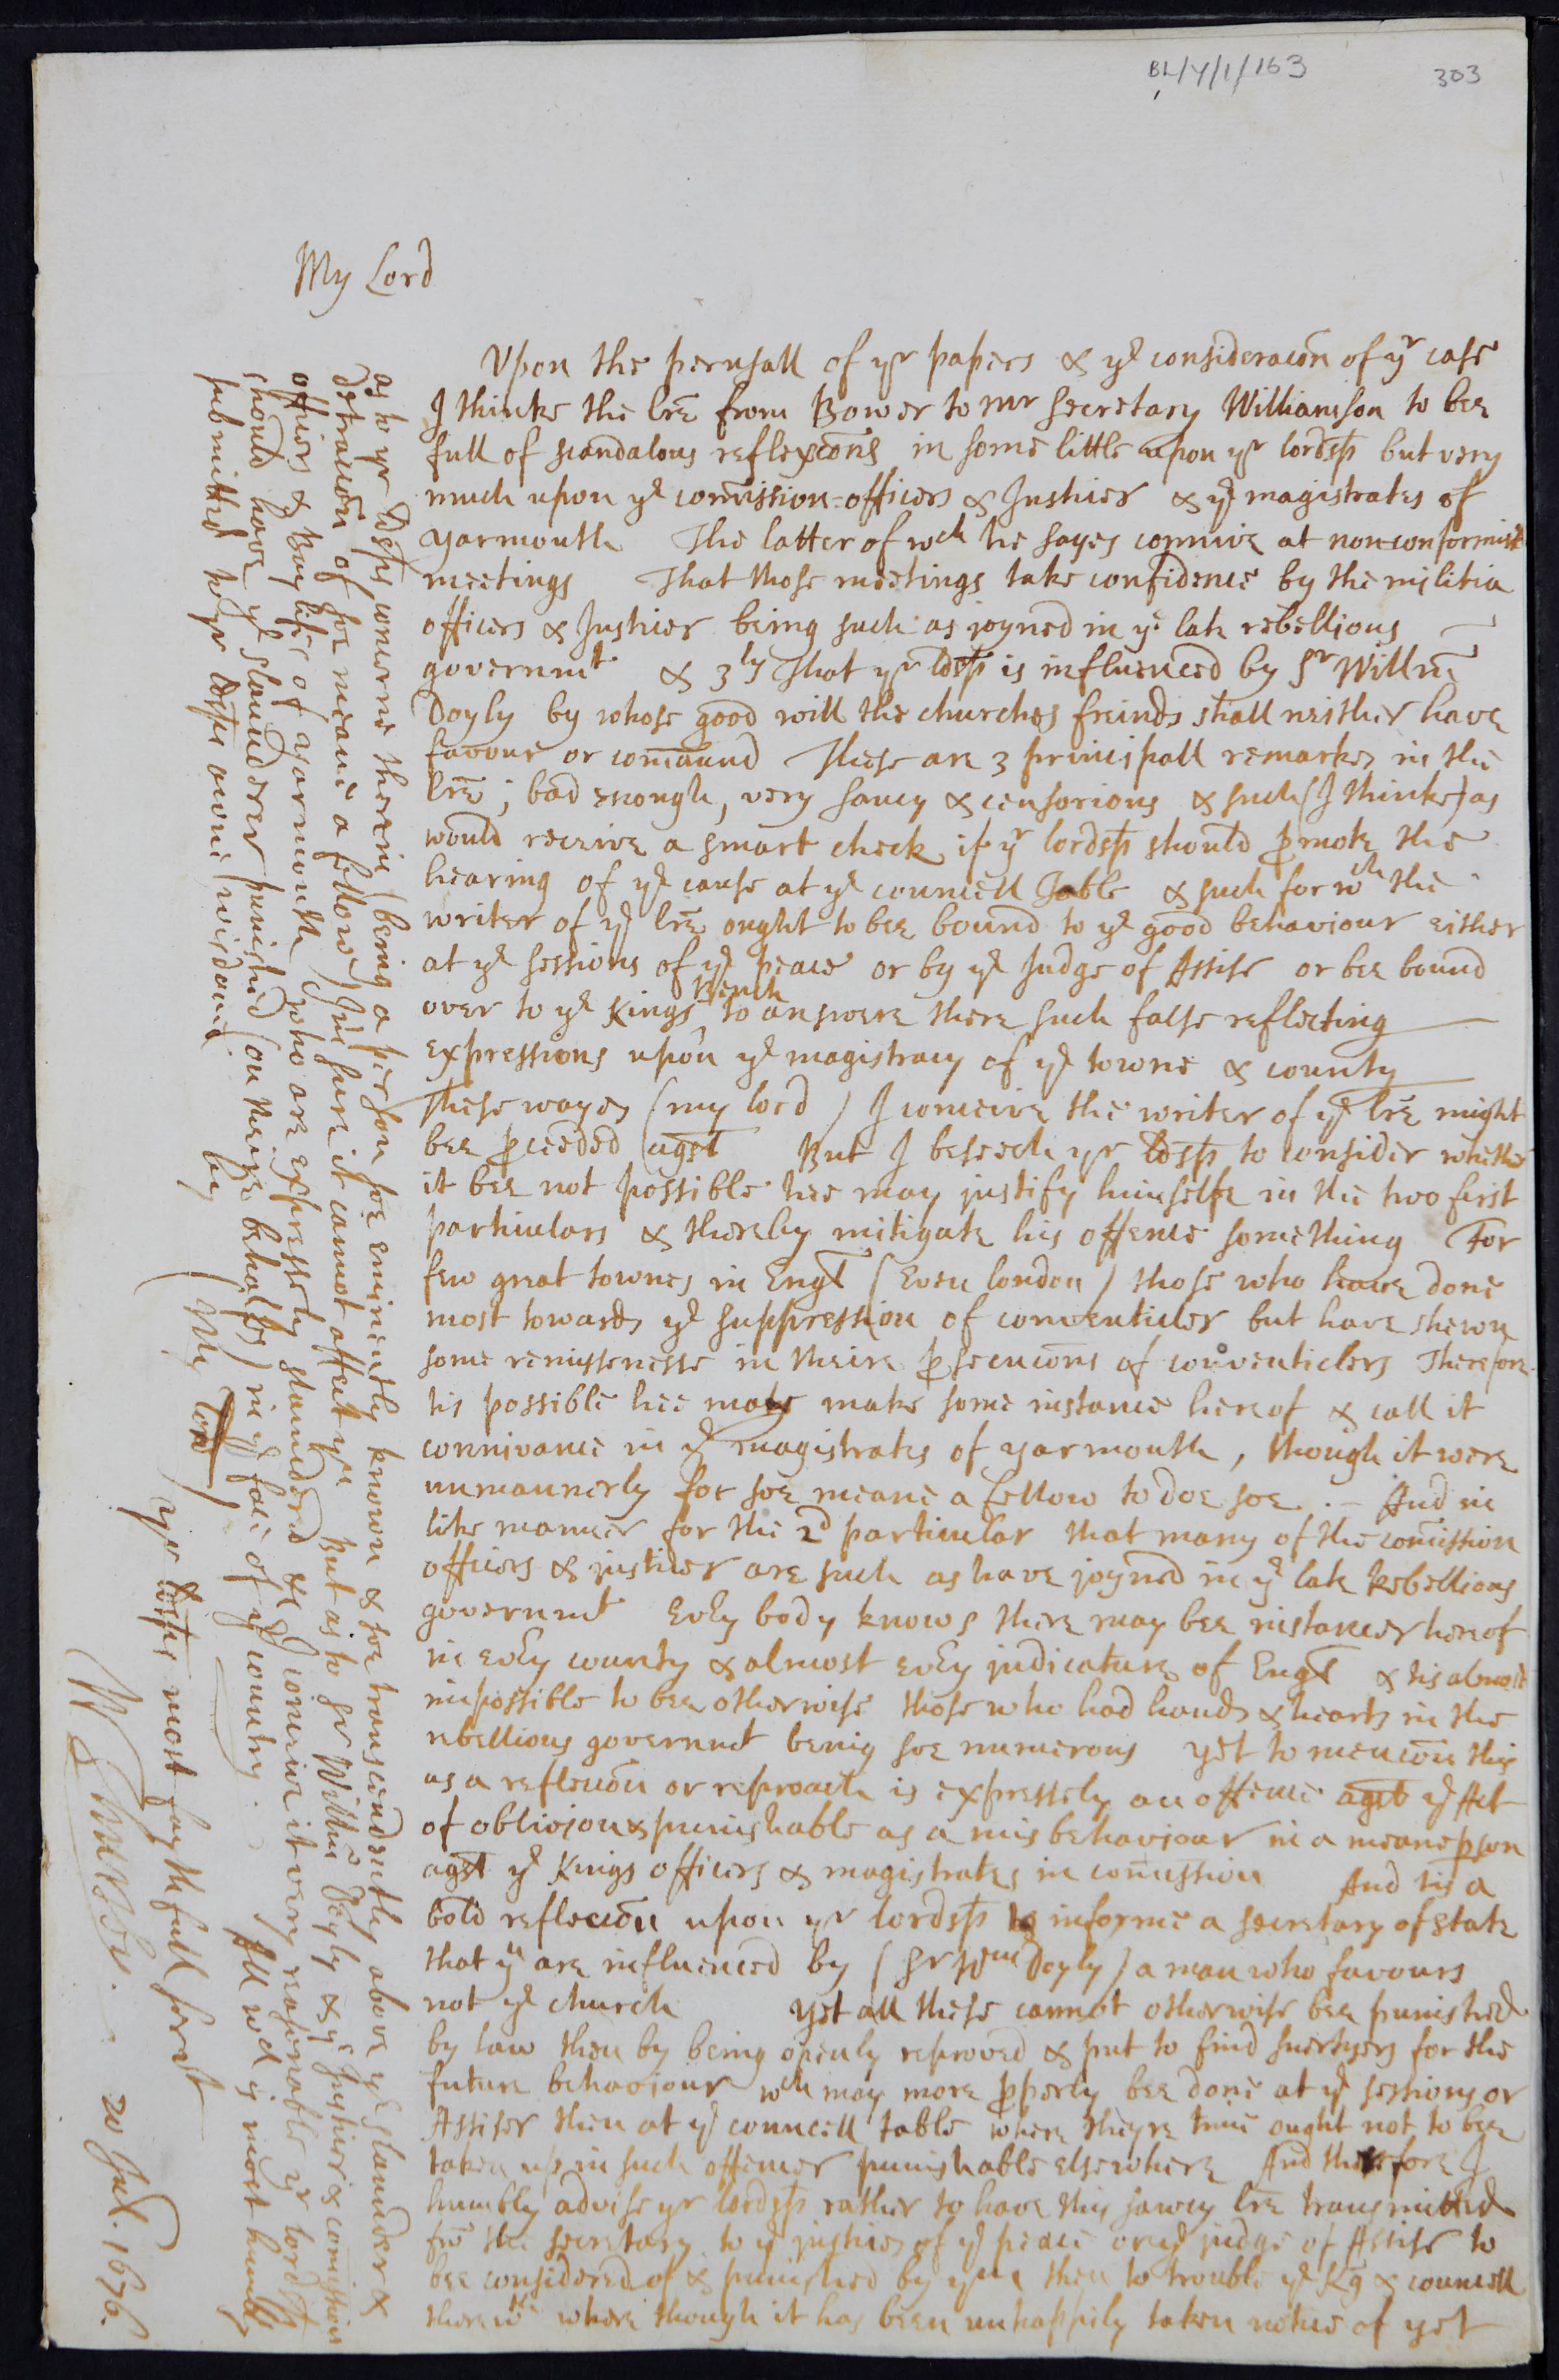 BL/Y/1/163
303
My Lord
Upon the perusall of yr papers & ye consideracon of yr case
I thinke the lre from Bower to Mr Secretary Williamson to bee
full of scandalous reflexcons in some little upon yr lordsp but very
much upon ye commission-officers & Justices & ye magistrates of
yarmouth The latter of wch he sayes connive at nonconformist
meetings That those meetings take confidence by the militia
officers & Justices being such as joyned in ye late rebellious
governmt & 3ly That yr ldsp is influenced by Sr Willm
Doyly by whose good will the churches freinds shall neither have
favour or comaund These are 3 principall remarkes in the
lre; bad enough, very saucy & censorious & such (I thinke) as
would receive a smart check if yr lordsp should pmote the
hearing of ye cause at ye councell Table & such for wch the
writer of ye lre ought to bee bound to ye good behaviour either
at ye sessions of ye peace or by ye Judge of Assise or bee bound
over to ye Kings Bench to answere there such false reflecting
expressions upon ye magistracy of ye towne & county
These wayes (my lord) I conceive the writer of ye lre might
bee pceeded agst But I beseech yr ldsp to consider whether
it bee not possible hee may justify himselfe in the two first
particulars & thereby mitigate his offence something For
few great townes in Engl (Even london) those who have done
most towards ye suppression of conventicles but have shewn
some remissenesse in theire psecucons of conventiclers Therefore
tis possible hee may make some instance hereof & call it
connivance in ye magistrates of yarmouth, though it were
unmannerly for soe meane a fellow to doe soe. And in
like manner for the 2d particular that many of the comission
officers & justices are such as have joyned in ye late Rebellious
governmt Evy body knows there may bee instances hereof
in evy county & almost evy judicature of Engl & tis almost
impossible to bee otherwise those who had hands & hearts in the
rebellious governmt being soe numerous yet to mencon this
as a reflexcon or reproach is expressely an offence agst ye Act
of oblivion & punishable as a misbehaviour in a meane pson
agst ye Kings officers & magistrates in comission And tis a
bold reflexcon upon yr lordsp to informe a secretary of state
that yu are influenced by (Sr Wm Doyly) a man who favours
not ye church Yet all these cannot otherwise bee punished
by law then by being openly reproved & put to find suertyes for the
future behaviour wch may more pperly bee done at ye sessions or
Assises then at ye councell table where theyre time ought not to bee
taken up in such offences punishable elsewhere And therefore I
humbly advise yr lordsp rather to have this sawcy lre transmitted
fro the secretary to ye justices of ye peace or ye judge of Assise to
bee considered of & punished by ym then to trouble ye Kg & councell
therewth where though it has been unhappily taken notice of yet
as to yr ldsps concerne therein (being a person soe eminently knowne & soe transcendently above ye slaunder &
detraccon of soe meane a fellow) I'me sure it cannot affect yu But as to Sr Willm Doyly & ye Justices & comission
officers & Bayliffs of yarmouth who are expressely slaundered &c I conceive it very reasonable yr lordsp
should have ye slaunderer punished (on theire behalfes) in ye face of ye country. All wch is most humbly
submitted to yr ldsps owne wisdome by
My Lord
yr ldsps most faythfull servt
20 Jul. 1676.